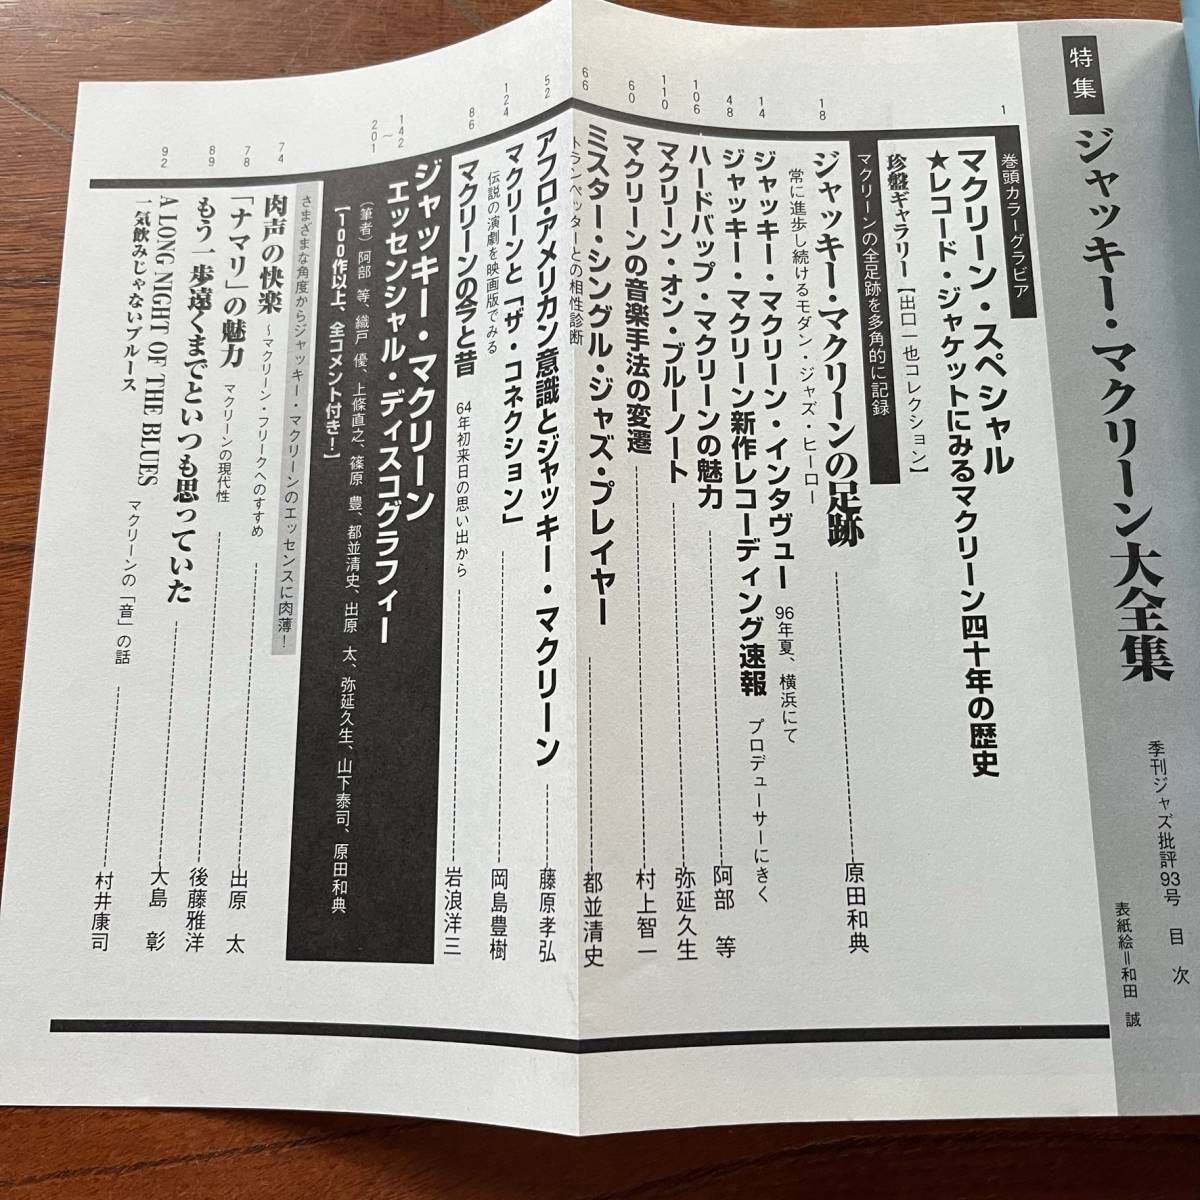 特集
ジャッキー・マクリーン大全集
季刊ジャズ批評93号 目次
表紙絵＝和田 誠
巻頭カラーグラビア
1
マクリーン・スペシャル
★レコード・ジャケットにみるマクリーン四十年の歴史
珍盤ギャラリー【出口一也コレクション】
マクリーンの全足跡を多角的に記録
18
ジャッキー・マクリーンの足跡
原田和典
常に進歩し続けるモダン・ジャズ・ヒーロー
14
ジャッキー・マクリーン・インタヴュー 96年夏、横浜にて
48
ジャッキー・マクリーン新作レコーディング速報 プロデューサーにきく
106
ハードバップ・マクリーンの魅力
阿部 等
110
マクリーン・オン・ブルーノート
弥延久生
60
マクリーンの音楽手法の変遷
村上智一
66
ミスター・シングル・ジャズ・プレイヤー
都並清史
トランペッターとの相性診断
52
アフロ・アメリカン意識とジャッキー・マクリーン
藤原孝弘
124
マクリーンと「ザ・コネクション」
岡島豊樹
伝説の演劇を映画版でみる
86
マクリーンの今と昔 64年初来日の思い出から
岩浪洋三
142〜201
ジャッキー・マクリーン
エッセンシャル・ディスコグラフィー
(筆者)阿部 等、織戸 優、上條直之、篠原 豊、都並清史、出原 太、弥延久生、山下泰司、原田和典
【100作以上、全コメント付き！】
さまざまな角度からジャッキー・マクリーンのエッセンスに肉薄！
74
肉声の快楽 〜マクリーン・フリークへのすすめ
出原 太
78
「ナマリ」の魅力 マクリーンの現代性
後藤雅洋
89
もう一歩遠くまでといつも思っていた
大島 彰
92
A LONG NIGHT OF THE BLUES
一気飲みじゃないブルース マクリーンの「音」の話
村井康司